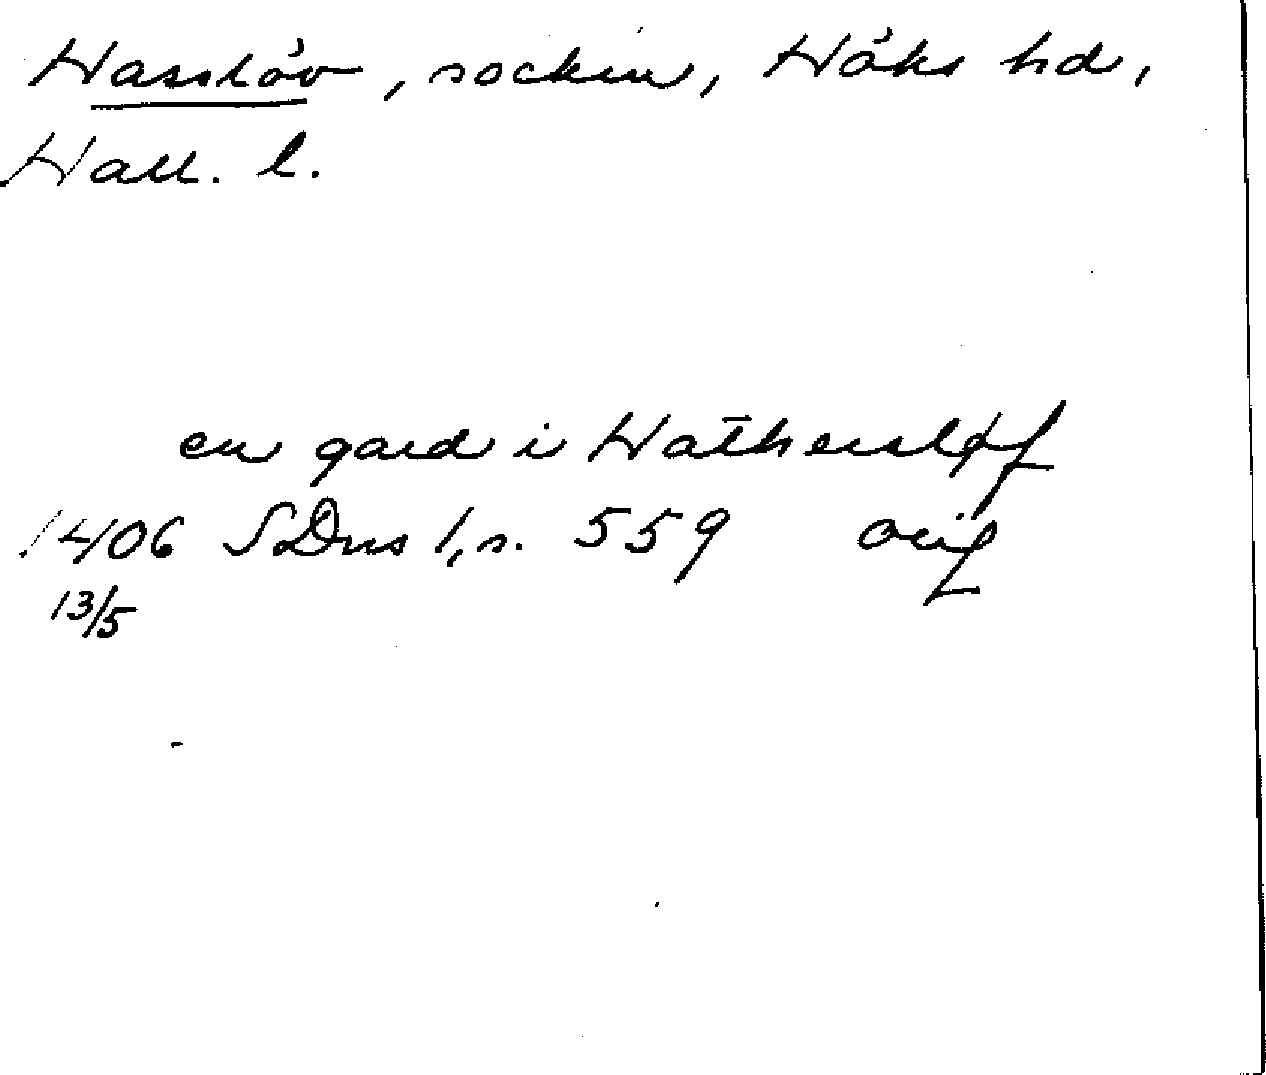 Hasslöv, socken, Höks hd,
Hall. l.
en gard i Hathersløf
1406 SDns 1, s. 559 orig
13/5